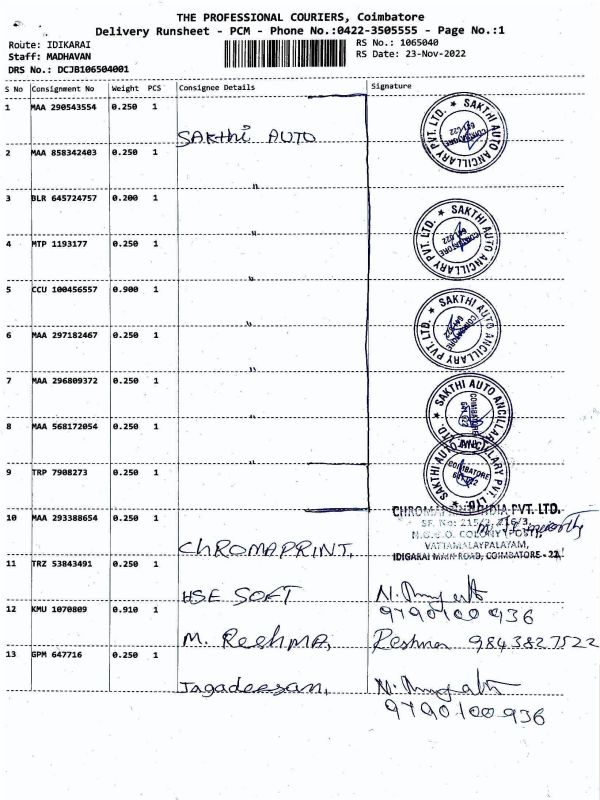 THE PROFESSIONAL COURIERS, Coimbatore
Delivery Runsheet - PCM - Phone No.:0422-3505555 - Page No.:1
Route: IDIKARAI
RS No.: 1065040
Staff: MADHAVAN
RS Date: 23-Nov-2022
DRS No.: DCJB106504001
S No Consignment No Weight PCS Consignee Details Signature
1 MAA 290543554 0.250 1
SAKthi AUTO
SAKTHI AUTO ANCILLARY PVT. LTD. ★ COIMBATORE 641 022
2 MAA 858342403 0.250 1
"
3 BLR 645724757 0.200 1
"
SAKTHI AUTO ANCILLARY PVT. LTD. ★ COIMBATORE 641 022
4 MTP 1193177 0.250 1
"
5 CCU 100456557 0.900 1
"
SAKTHI AUTO ANCILLARY PVT. LTD. ★ COIMBATORE 641 022
6 MAA 297182467 0.250 1
"
7 MAA 296809372 0.250 1
"
SAKTHI AUTO ANCILLARY PVT. LTD. ★ COIMBATORE 641 022
8 MAA 568172054 0.250 1
"
SAKTHI AUTO ANCILLARY PVT. LTD. ★ COIMBATORE 641 022
9 TRP 7908273 0.250 1
"
10 MAA 293388654 0.250 1
CHROMAPRINT,
CHROMAPRINT INDIA PVT. LTD.
SF. No: 215/3, 216/3,
N.G.G.O. COLONY (POST),
VATTAMALAYPALAYAM,
IDIGARAI MAIN ROAD, COIMBATORE - 22.
11 TRZ 53843491 0.250 1
HSE SOFT
9790100936
12 KMU 1070809 0.910 1
M. Reshma, Reshma 9843827522
13 GPM 647716 0.250 1
Jagadeesan,
9790100936